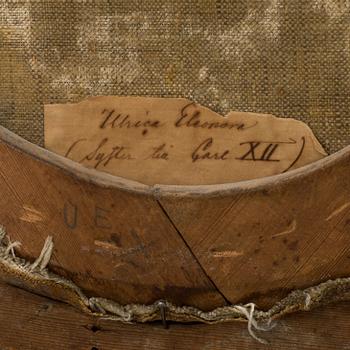 Ulrica Eleonora
(Syster till Carl XII)
U E